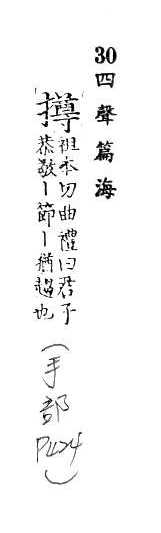 30四聲篇海
撙祖本切曲禮曰君子
恭敬丨節丨猶趨也
(手部
P424)